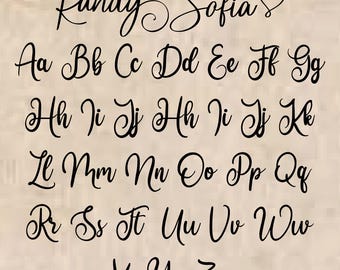 Randy Sofia
Aa Bb Cc Dd Ee Ff Gg
Hh Ii Jj Hh Ii Jj Kk
Ll Mm Nn Oo Pp Qq
Rr Ss Tt Uu Vv Ww